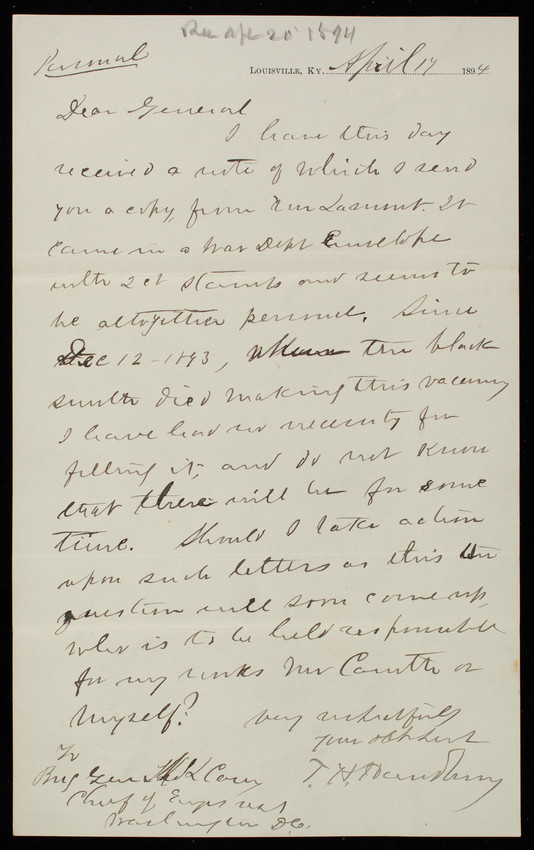 Rec Apl 20 1894
Personal
LOUISVILLE, KY. April 19 1894
Dear General
I have this day
received a note of which I send
you a copy, from Mr Lamont. It
came in a War Dept Envelope
with 2 ct Stamps and seems to
be altogether personal. Since
Dec 12 - 1893, when the black
smith died making this vacancy
I have had no necessity for
filling it, and do not know
that there will be for some
time. Should I take action
upon such letters as this the
question will soon come up,
who is to be held responsible
for my works Mr Caruth or
Myself?
Very respectfully
your obt svt
To
Brig Gen Thos L Casey
Chief of Engrs USA
Washington DC.